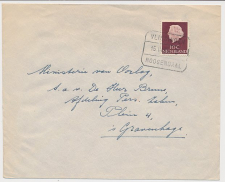 10c
NEDERLAND
ROOSENDAAL
Ministerie van Oorlog,
t.a.v. De Heer Brune,
Afdeling Pers. Zaken,
Plein 4,
's Gravenhage